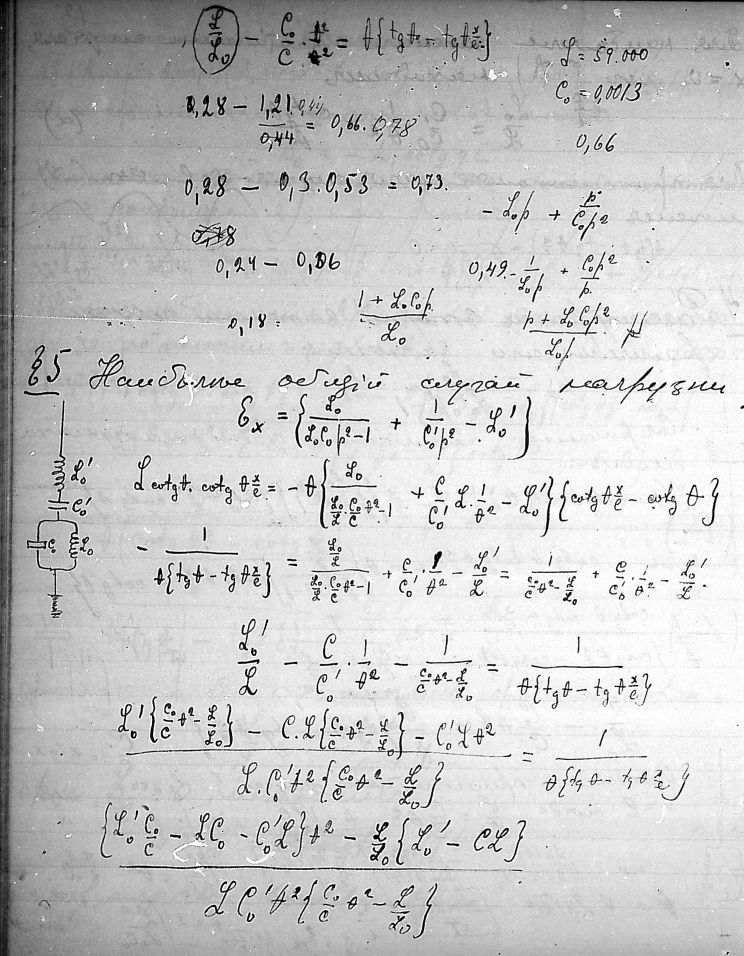 ℒ/ℒ₀ − C₀/C · θ² = θ{tg θ − tg θ x/ℓ}
ℒ = 59.000
C₀ = 0,0013
0,28 − 1,21·0,44/0,44 = 0,66 · 0,78
0,66
0,28 − 0,3 · 0,53 = 0,73.
− ℒ₀p + p/C₀p²
0,24 − 0,06
0,49 − 1/ℒ₀p + C₀p²/p
0,18 =
1 + ℒ₀C₀p/ℒ₀
p + ℒ₀C₀p²/ℒ₀p
§5 Наиболѣе общій случай нагрузки
Ɛₓ = {ℒ₀/(ℒ₀C₀p² − 1) + 1/C₀′p² − ℒ₀′}
ℒ₀′
C₀′
C₀ ℒ₀
ℒ cotg θ · cotg θ x/ℓ = − θ{ℒ₀/(ℒ₀/ℒ · C₀/C θ² − 1) + C/C₀′ ℒ · 1/θ² − ℒ₀′}{cotg θ x/ℓ − cotg θ}
− 1/θ{tg θ − tg θ x/ℓ} = (ℒ₀/ℒ)/(ℒ₀/ℒ · C₀/C θ² − 1) + C/C₀′ · 1/θ² − ℒ₀′/ℒ = 1/(C₀/C θ² − ℒ/ℒ₀) + C/C₀′ · 1/θ² − ℒ₀′/ℒ.
ℒ₀′/ℒ − C/C₀′ · 1/θ² − 1/(C₀/C θ² − ℒ/ℒ₀) = 1/θ{tg θ − tg θ x/ℓ}
(ℒ₀′{C₀/C θ² − ℒ/ℒ₀} − C·ℒ{C₀/C θ² − ℒ/ℒ₀} − C₀′ℒθ²)/(ℒ·C₀′θ²{C₀/C θ² − ℒ/ℒ₀}) = 1/θ{tg θ − tg θ x/ℓ}
({ℒ₀′ C₀/C − ℒC₀ − C₀′ℒ}θ² − ℒ/ℒ₀{ℒ₀′ − Cℒ})/(ℒC₀′θ²{C₀/C θ² − ℒ/ℒ₀})